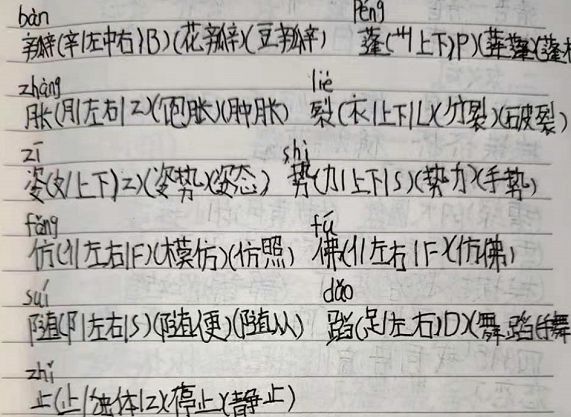 bàn péng
瓣(辛|左中右|B)(花瓣)(豆瓣) 蓬(艹|上下|P)
zhàng liè
胀(月|左右|Z)(饱胀)(肿胀) 裂(衣|上下|L)(分裂)(破裂)
zī shì
姿(女|上下|Z)(姿势)(姿态) 势(力|上下|S)(势力)(手势)
fǎng fú
仿(亻|左右|F)(模仿)(仿照) 佛(亻|左右|F)(仿佛)
suí dǎo
随(阝|左右|S)(随便)(随从) 蹈(足|左右|D)(舞蹈)(手舞
zhǐ
止(止|独体|Z)(停止)(静止)